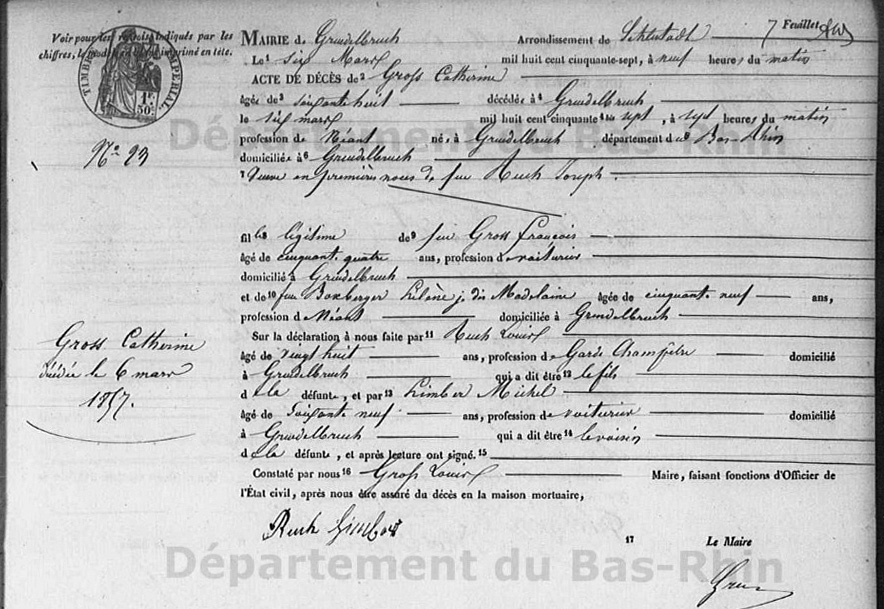 Voir pour les renvois indiqués par les
chiffres, le modèle en blanc imprimé en tête.
TIMBRE IMPÉRIAL
1F.
50C.
7 Feuillet
MAIRIE de Grendelbruch Arrondissement de Schlestadt
Le 1 six Mars mil huit cent cinquante-sept, à neuf heures du matin
ACTE DE DÉCÈS de 2 Gross Catherine
âgée de 3 soixante huit décédée à 4 Grendelbruch
le six mars mil huit cent cinquante sept, à sept heures du matin
profession de Néant née à Grendelbruch département du Bas-Rhin
N° 23
domiciliée à 6 Grendelbruch
7 Veuve en premières noces de feu Ruch Joseph
fille légitime de 9 feu Gross François
âgé de cinquante quatre ans, profession de voiturier
domicilié à Grendelbruch
et de 10 feue Boxberger Hélène j. dis Madelaine âgée de cinquante neuf ans,
profession de Néant domiciliée à Grendelbruch
Sur la déclaration à nous faite par 11 Ruch Louis
Gross Catherine
décédée le 6 mars
1857.
âgé de vingt huit ans, profession de Garde Champêtre domicilié
à Grendelbruch qui a dit être 12 le fils
de la défunte, et par 13 Himber Michel
âgé de soixante neuf ans, profession de voiturier domicilié
à Grendelbruch qui a dit être 14 le voisin
de la défunte, et après lecture ont signé. 15
Constaté par nous 16 Gross Louis Maire, faisant fonctions d'Officier de
l'État civil, après nous être assuré du décès en la maison mortuaire,
Ruch
17 Le Maire
Département du Bas-Rhin
Département du Bas-Rhin